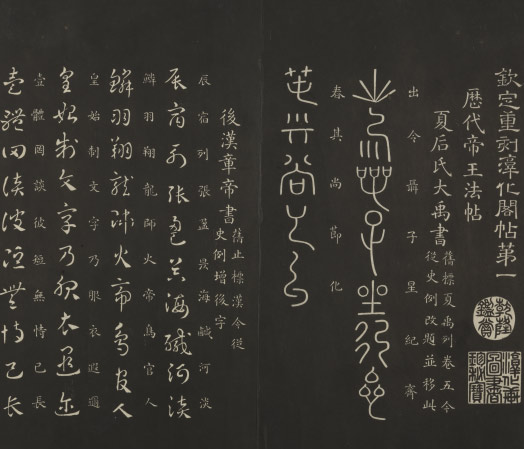 欽定重刻淳化閣帖第一
乾隆鑑賞
淳化軒圖書珍秘寶
歷代帝王法帖
夏后氏大禹書
舊標夏禹列卷五今
從史例改題並移此
出令聶子星紀齊
春其尚節化
後漢章帝書
舊止標漢今從
史例增後字
辰宿列張盈昃海鹹河淡
辰宿列張盈昃海鹹河淡
鱗羽翔龍師火帝鳥官人
鱗羽翔龍師火帝鳥官人
皇始制文字乃服衣遐邇
皇始制文字乃服衣遐邇
壹體罔談彼短無恃己長
壹體罔談彼短無恃己長